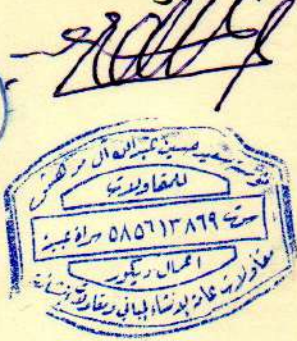 مؤسسة سعيد حسين عبدالله آل مرهش
للمقاولات
س.ت ٥٨٥٦١٣٨٦٩ سراة عبيدة
اعمال ديكور
مقاولات عامة لإنشاء المباني ومقاولات إنشائية